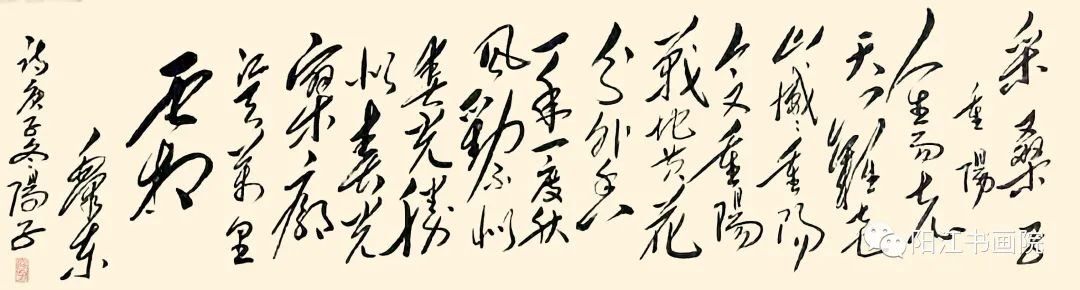 采桑子
重陽
人生易老
天難老
歲〻重陽
今又重陽
戰地黃花
分外香
一年一度秋
風勁不似
春光勝
似春光
寥廓
江天萬里
霜毛
澤東
詩庚子冬陽子
阳江书画院